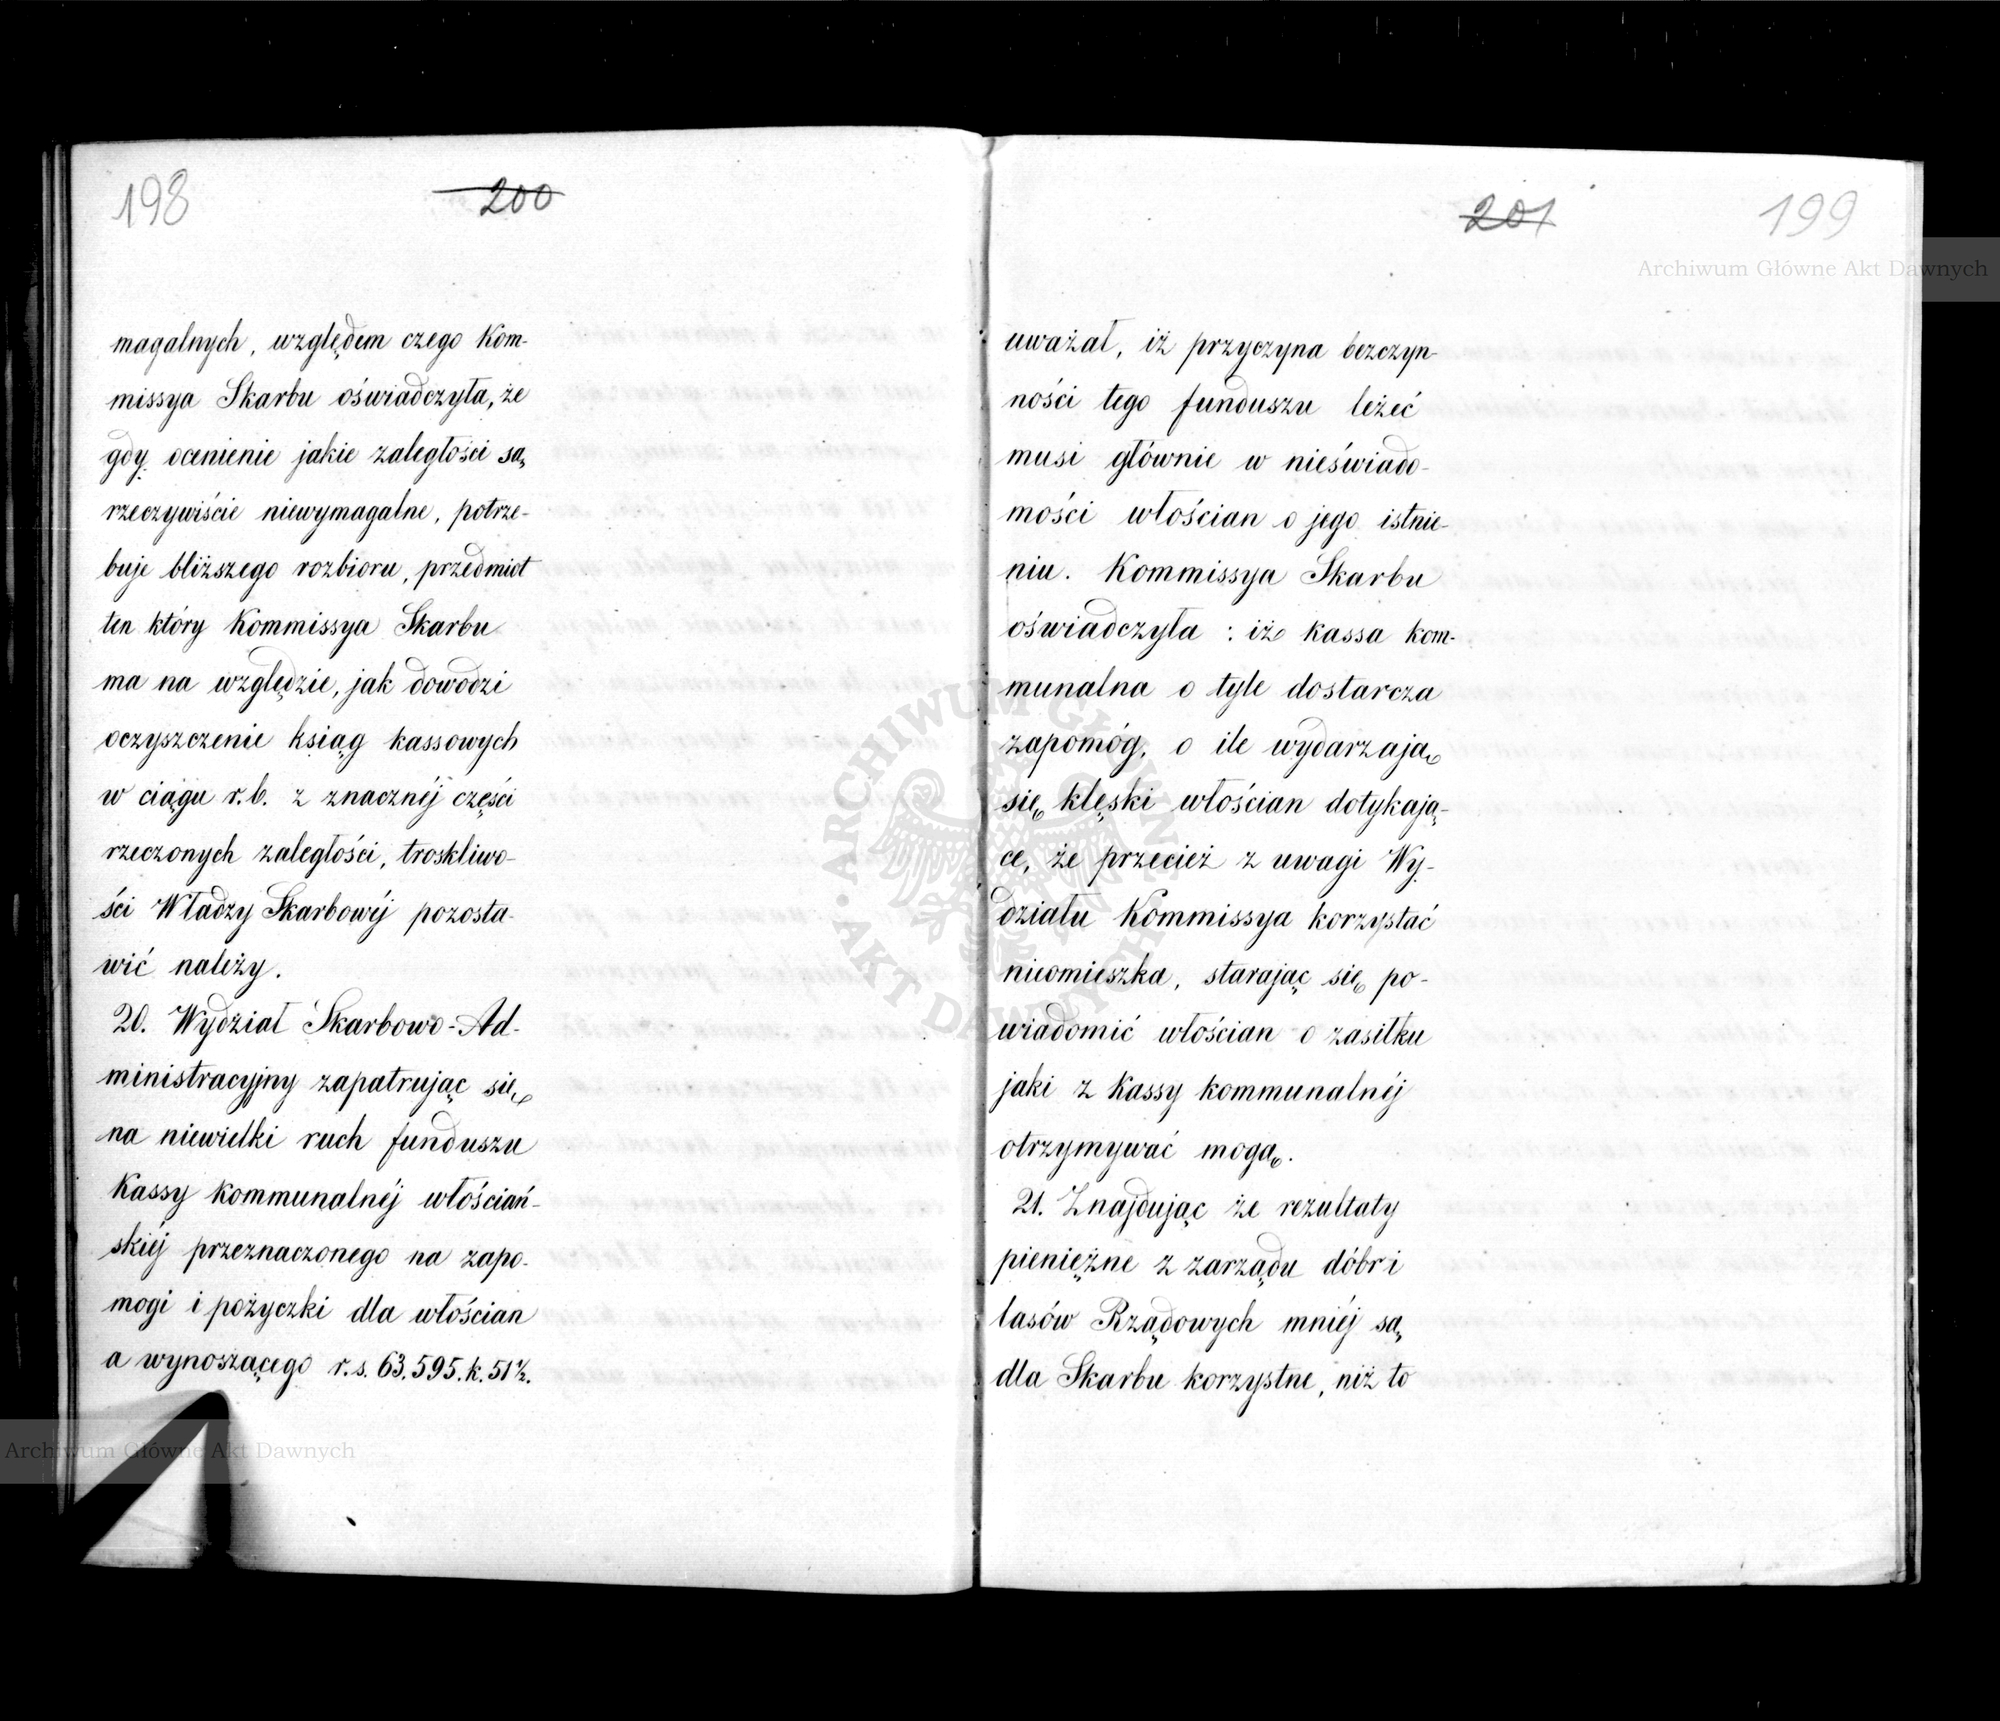 198
200
magalnych, względem czego Kom-
missya Skarbu oświadczyła, że
gdy ocenienie jakie zaległości są
rzeczywiście niewymagalne, potrze-
buje bliższego rozbioru, przedmiot
ten który Kommissya Skarbu
ma na względzie, jak dowodzi
oczyszczenie ksiąg kassowych
w ciągu r.b. z znacznéj części
rzeczonych zaległości, troskliwo-
ści Władzy Skarbowéj pozosta-
wić należy.
20. Wydział Skarbowo-Ad-
ministracyjny zapatrując się
na niewielki ruch funduszu
Kassy kommunalnéj włościań-
skiéj przeznaczonego na zapo-
mogi i pożyczki dla włościan
a wynoszącego r.s. 63,595.k.51½.
201
199
uważał, iż przyczyna bezczyn-
ności tego funduszu leżeć
musi głównie w nieświado-
mości włościan o jego istnie-
niu. Kommissya Skarbu
oświadczyła : iż kassa kom-
munalna o tyle dostarcza
zapomóg, o ile wydarzają
się klęski włościan dotykają-
ce, że przecież z uwagi Wy-
działu Kommissya korzystać
nieomieszka, starając się po-
wiadomić włościan o zasiłku
jaki z Kassy kommunalnéj
otrzymywać mogą.
21. Znajdując że rezultaty
pieniężne z zarządu dóbr i
lasów Rządowych mniéj są
dla Skarbu korzystne, niż to
Archiwum Główne Akt Dawnych
Archiwum Główne Akt Dawnych
ARCHIWUM GŁÓWNE AKT DAWNYCH